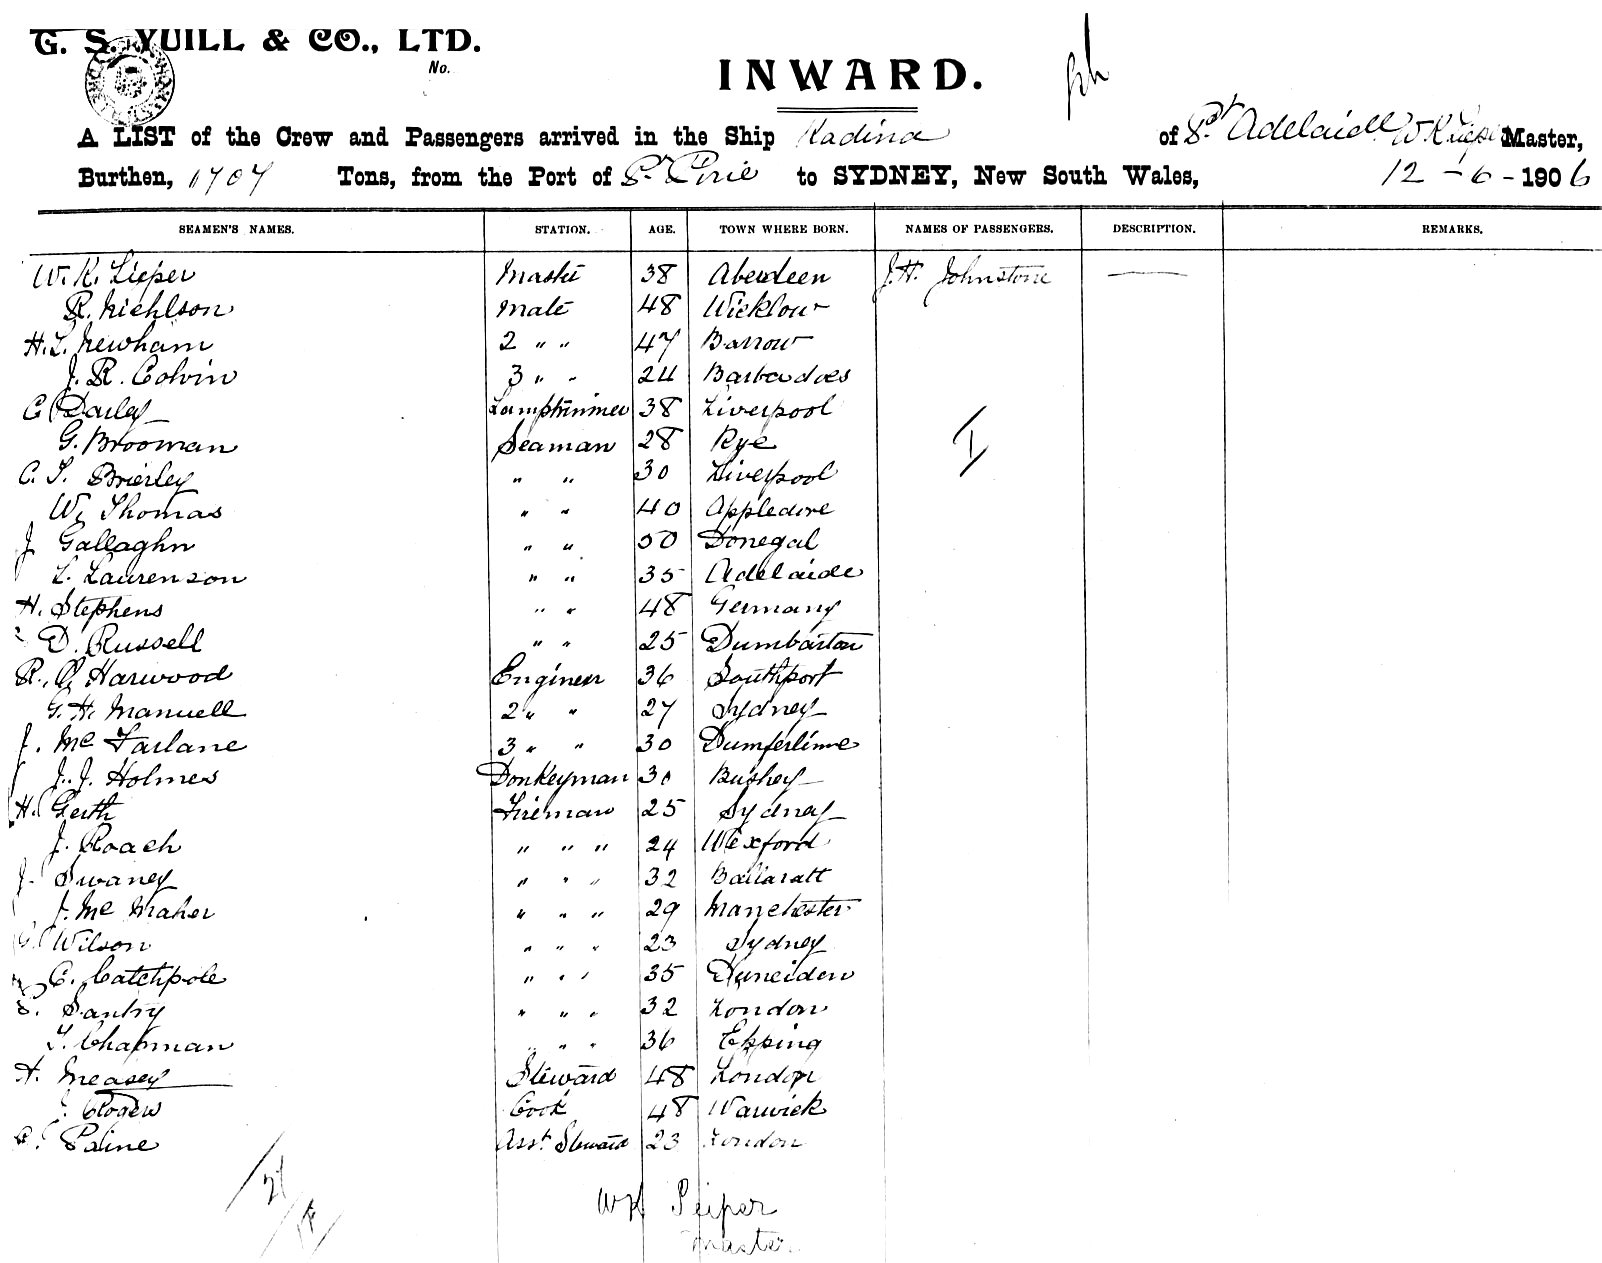 G. S. YUILL & CO., LTD.
No.
INWARD.
A LIST of the Crew and Passengers arrived in the Ship Kadina of Pt Adelaide W. K. Lieper Master,
Burthen, 1707 Tons, from the Port of Pt Pirie to SYDNEY, New South Wales, 12-6-1906
SEAMEN'S NAMES. STATION. AGE. TOWN WHERE BORN. NAMES OF PASSENGERS. DESCRIPTION. REMARKS.
W. K. Lieper Maste 38 Aberdeen J. H. Johnstone —
R. Niehlson Mate 48 Wicklow
H. L. Newham 2 " " 47 Barrow
J. R. Colvin 3 " " 24 Barbadoes
C Darley Lamptrimmer 38 Liverpool
G. Brooman Seaman 28 Rye I
C. T. Brierley " " 30 Liverpool
W. Thomas " " 40 Appledore
J Gallaghn " " 50 Donegal
L. Laurenson " " 35 Adelaide
H. Stephens " " 48 Germany
D. Russell " " 25 Dumbarton
R. O. Harwood Engineer 36 Southport
G. H. Manuell 2 " " 27 Sydney
J. Mc Farlane 3 " " 30 Dumferline
J. J. Holmes Donkeyman 30 Bushey
H. Gerth Fireman 25 Sydney
J. Roach " " " 24 Wexford
J. Swaney " " " 32 Ballaratt
J. Mc Maher " " " 29 Manchester
G. Wilson " " " 23 Sydney
C. Catchpole " " " 35 Duneiden
Santry " " " 32 London
T. Chapman " " " 36 Epping
H. Measey Steward 48 London
J. Rogers Cook 48 Warwick
Paine Asst. Steward 23 London
W K Lieper
Master